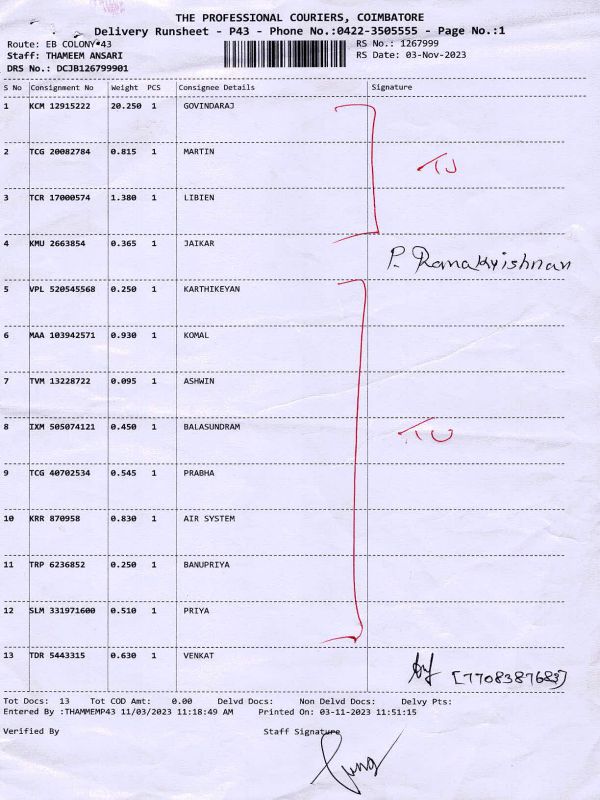 THE PROFESSIONAL COURIERS, COIMBATORE
Delivery Runsheet - P43 - Phone No.:0422-3505555 - Page No.:1
Route: EB COLONY*43 RS No.: 1267999
Staff: THAMEEM ANSARI RS Date: 03-Nov-2023
DRS No.: DCJB126799901
S No Consignment No Weight PCS Consignee Details Signature
1 KCM 12915222 20.250 1 GOVINDARAJ
2 TCG 20082784 0.815 1 MARTIN
3 TCR 17000574 1.380 1 LIBIEN
4 KMU 2663854 0.365 1 JAIKAR P. Ramakrishnan
5 VPL 520545568 0.250 1 KARTHIKEYAN
6 MAA 103942571 0.930 1 KOMAL
7 TVM 13228722 0.095 1 ASHWIN
8 IXM 505074121 0.450 1 BALASUNDRAM
9 TCG 40702534 0.545 1 PRABHA
10 KRR 870958 0.830 1 AIR SYSTEM
11 TRP 6236852 0.250 1 BANUPRIYA
12 SLM 331971600 0.510 1 PRIYA
13 TDR 5443315 0.630 1 VENKAT [7708387683]
Tot Docs: 13 Tot COD Amt: 0.00 Delvd Docs: Non Delvd Docs: Delvy Pts:
Entered By :THAMMEMP43 11/03/2023 11:18:49 AM Printed On: 03-11-2023 11:51:15
Verified By Staff Signature